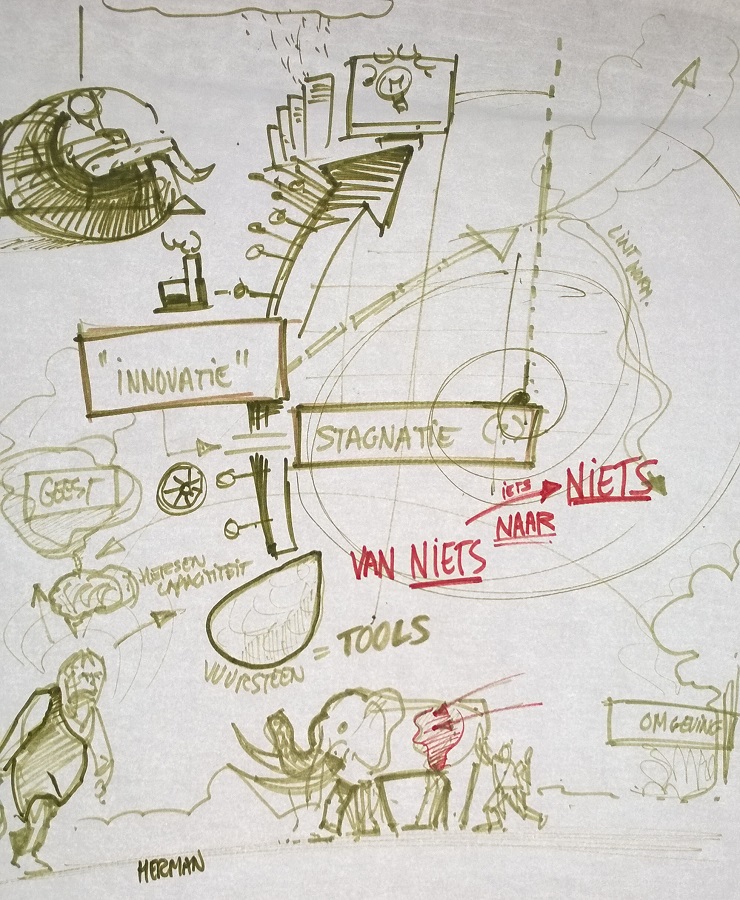 LINT WORM.
"INNOVATIE"
STAGNATIE
GEEST
IETS
NIETS
NAAR
VAN NIETS
HERSEN
CAPACITITEIT
VUURSTEEN
= TOOLS
OMGEVING
HERMAN